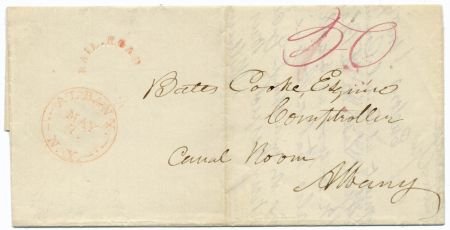 RAIL ROAD
ALBANY
MAY
7
N.Y.
Bates Cooke, Esquire
Comptroller
Canal Room
Albany